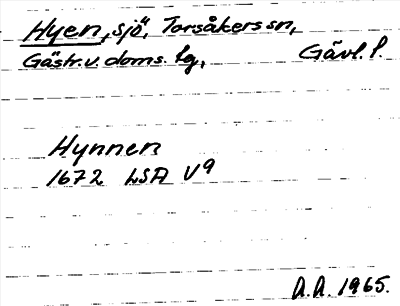 Hyen, sjö, Torsåkers sn,
Gästr. v. doms. lg, Gävl. l.
Hynnen
1672 LSA V9
A.A. 1965.